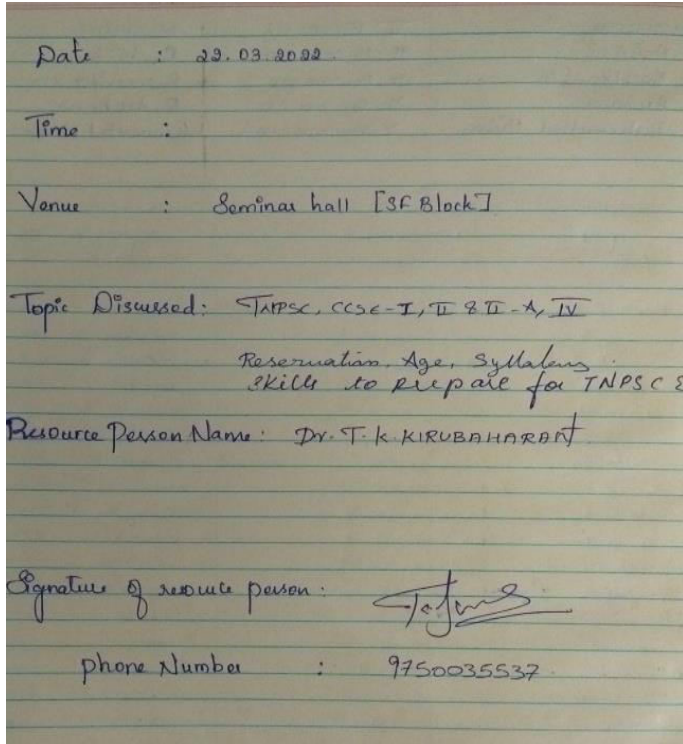 Date : 22.03.2022
Time :
Venue : Seminar hall [SF Block]
Topic Discussed: TNPSC, CCSE-I, II & II-A, IV
Reservation, Age, Syllabus
Skills to prepare for TNPSC
Resource Person Name: Dr. T. K. KIRUBAHARAN
Signature of resource person:
phone Number : 9750035537